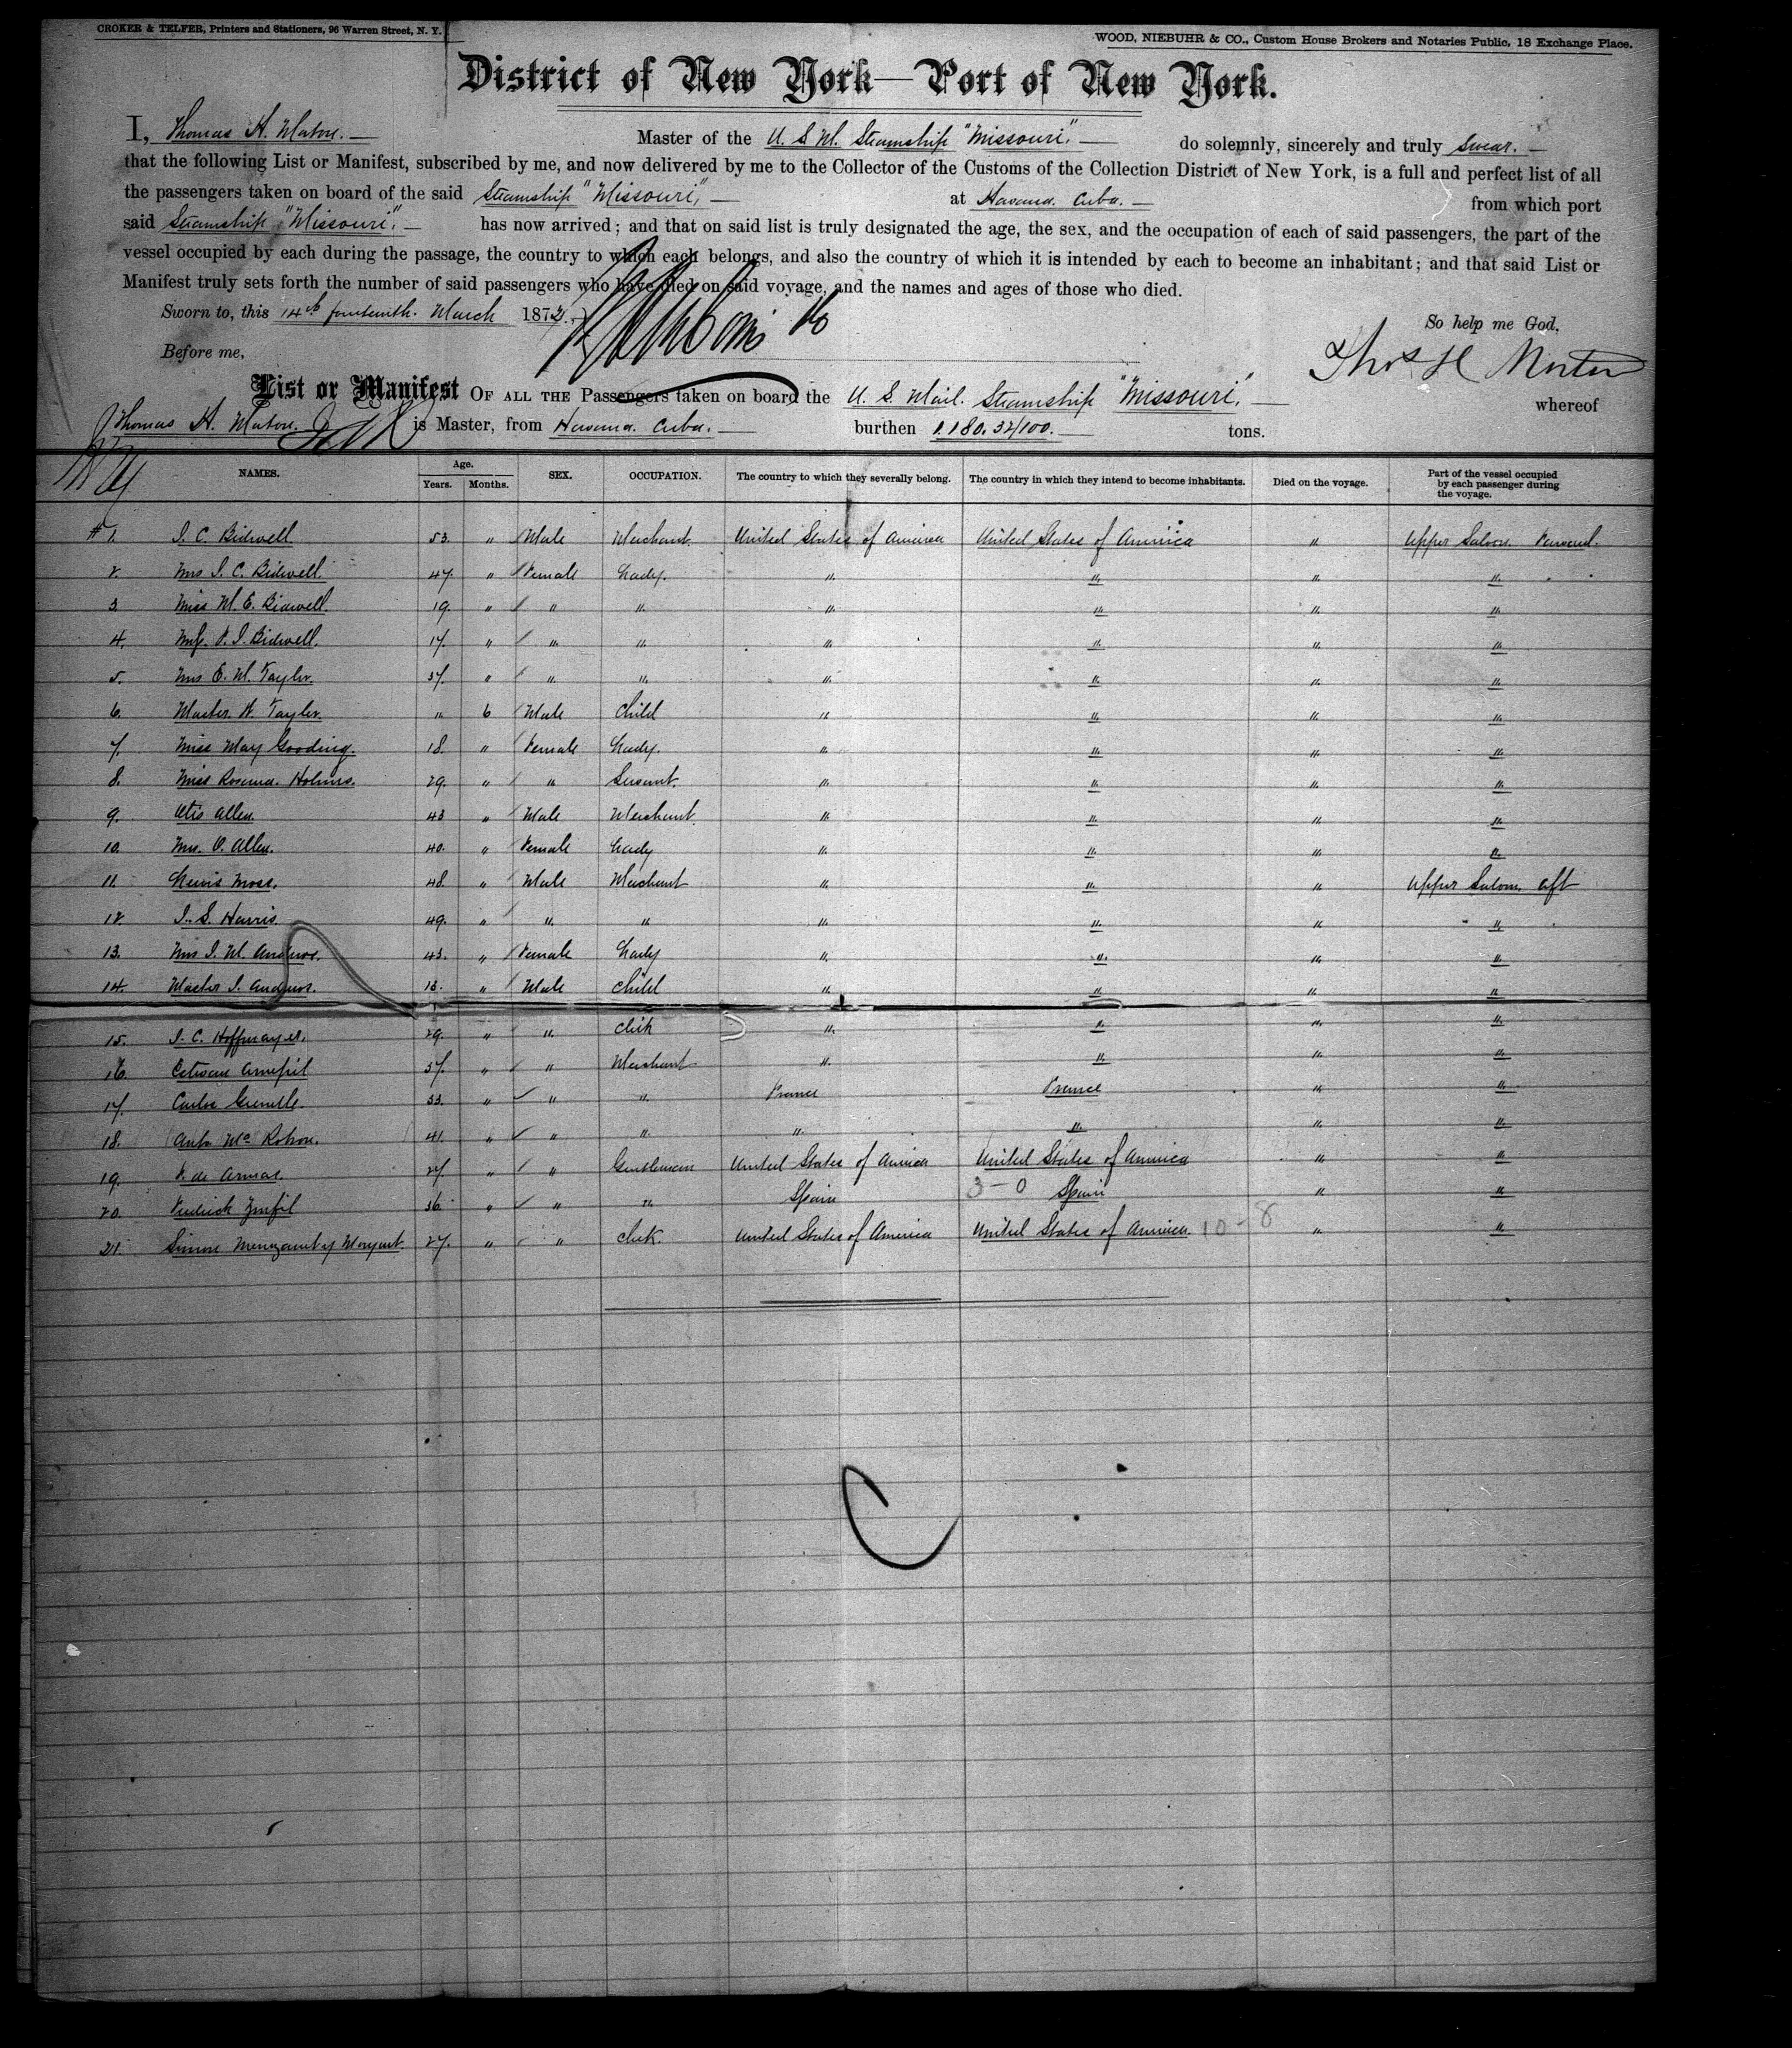 CROKER & TELFER, Printers and Stationers, 96 Warren Street, N. Y.
WOOD, NIEBUHR & CO., Custom House Brokers and Notaries Public, 18 Exchange Place.
District of New York—Port of New York.
I, Thomas H. Morton. — Master of the U. S. M. Steamship "Missouri". — do solemnly, sincerely and truly swear. —
that the following List or Manifest, subscribed by me, and now delivered by me to the Collector of the Customs of the Collection District of New York, is a full and perfect list of all
the passengers taken on board of the said Steamship "Missouri", — at Havana. Cuba. — from which port
said Steamship "Missouri". — has now arrived; and that on said list is truly designated the age, the sex, and the occupation of each of said passengers, the part of the
vessel occupied by each during the passage, the country to which each belongs, and also the country of which it is intended by each to become an inhabitant; and that said List or
Manifest truly sets forth the number of said passengers who have died on said voyage, and the names and ages of those who died.
Sworn to, this 14th fourteenth. March 1872.
So help me God,
Before me,
Thos H Morton
List or Manifest OF ALL THE Passengers taken on board the U. S. Mail. Steamship "Missouri". — whereof
Thomas H. Morton. is Master, from Havana. Cuba. — burthen 1.180.32/100. — tons.
NAMES. Age. Years. Months. SEX. OCCUPATION. The country to which they severally belong. The country in which they intend to become inhabitants. Died on the voyage. Part of the vessel occupied by each passenger during the voyage.
#1. I. C. Bidwell 53. " Male Merchant. United States of America United States of America " Upper Saloon. Forward.
2. Mrs I. C. Bidwell. 47. " Female Lady. " " " "
3. Miss M. E. Bidwell. 19. " " " " " " "
4. I. Bidwell. 17. " " " " " " "
5. Mrs E. M. Taylor. 37. " " " " " " "
6. Master. W. Taylor. " 6 Male Child " " " "
7. Miss May Gooding. 18. " Female Lady. " " " "
8. Miss Holms. 29. " " Servant. " " " "
9. Otis Allen. 43 " Male Merchant. " " " "
10. Mrs. O. Allen. 40. " Female Lady " " " "
11. Lewis Moss. 48. " Male Merchant " " " Upper Saloon. aft
12. I. S. Harris. 49. " " " " " " "
13. Mrs I. M. 43. " Female Lady " " " "
14. Master I. 13. " Male Child " " " "
15. I. C. Hoffmayer. 29. " " Clerk " " " "
16. 37. " " Merchant " " " "
17. Carlos 33. " " " France France " "
18. 41. " " " " " " "
19. de Armas. 27. " " Gentleman United States of America United States of America " "
20. 36. " " " Spain 3-0 Spain " "
21. Simon 27. " " Clerk. United States of America United States of America. 10-8 " "